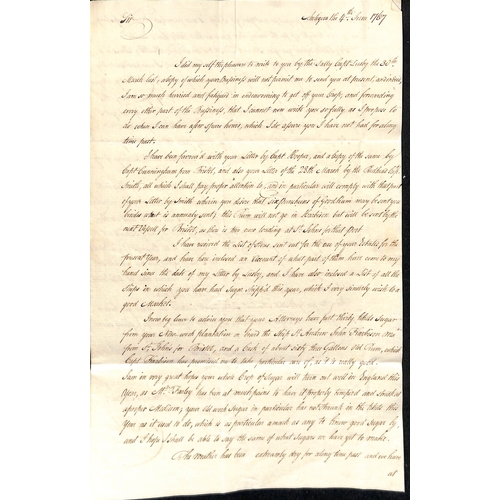 Sir
Antigua the 4th June 1767
I did my self the pleasure to write to you by the Sally Capt. Lusby the 30th
March last, a Copy of which your Bussiness will not permit me to send you at present, as indeed
I am so much hurried and fatigued in endeavouring to get off your Crop, and forwarding
every other part of the Bussiness, that I cannot now write you so fully, as I propose to
do when I can have a few spare hours, which I do assure you I have not had for a long
time past.
I have been favour'd with your Letter by Capt. Hooper, and a Copy of the same by
Capt. Cunningham from Bristol, and also your Letter of the 28th March by the Capt.
Smith, all which I shall pay proper attention to, and in particular will comply with that part
of your Letter by Smith wherein you desire that Six of Good Rum may be sent you
besides what is annualy sent; this Rum will not go in but will be sent by the
next Vessell for Bristol, as there is two now loading at St. Johns for that Port
I have received the List of Stores sent out for the use of your Estates for the
present Year, and have here inclosed an Account of what part of them have come to my
hand since the date of my Letter by Lusby, and I have also inclosed a List of all the
Ships in which you have had Sugar shipp'd this year, which I very sincerely wish to a
good Market.
I now beg leave to inform you that your Attorneys have put thirty Hhds Sugar
from your New-work plantation on board the Ship St. Andrew John
from St. Johns for Bristol, and a Cask of about sixty three Gallons Old Rum, which
Capt. has promised me to take particular care of, as it is really good.
I am in very great hopes your whole Crop of Sugar will turn out well in England this
Year, as Mr. Farley has been at much pains to have it properly temper'd and struck at
a proper Medium; your old work Sugar in particular has not shrunk in the Hhds this
Year as it used to do, which is as particular a mark as any to know good Sugar by,
and I hope I shall be able to say the same of what Sugars we have yet to make.
The Weather has been extremely dry for a long time past and we have
at